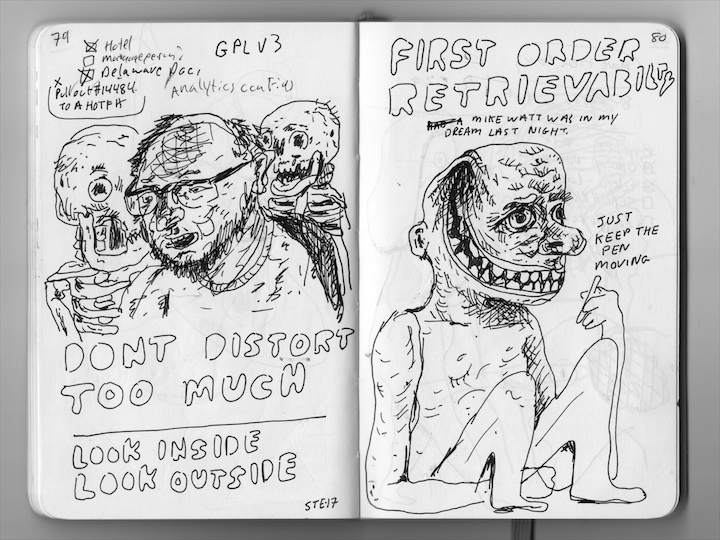 79
Hotel
GPLV3
Delaware Doc,
Pull out #14484
TO A HOTFIX
Analytics config
DONT DISTORT
TOO MUCH
LOOK INSIDE
LOOK OUTSIDE
STE·17
80
FIRST ORDER
RETRIEVABILITY
A MIKE WATT WAS IN MY
DREAM LAST NIGHT.
JUST
KEEP THE
PEN
MOVING